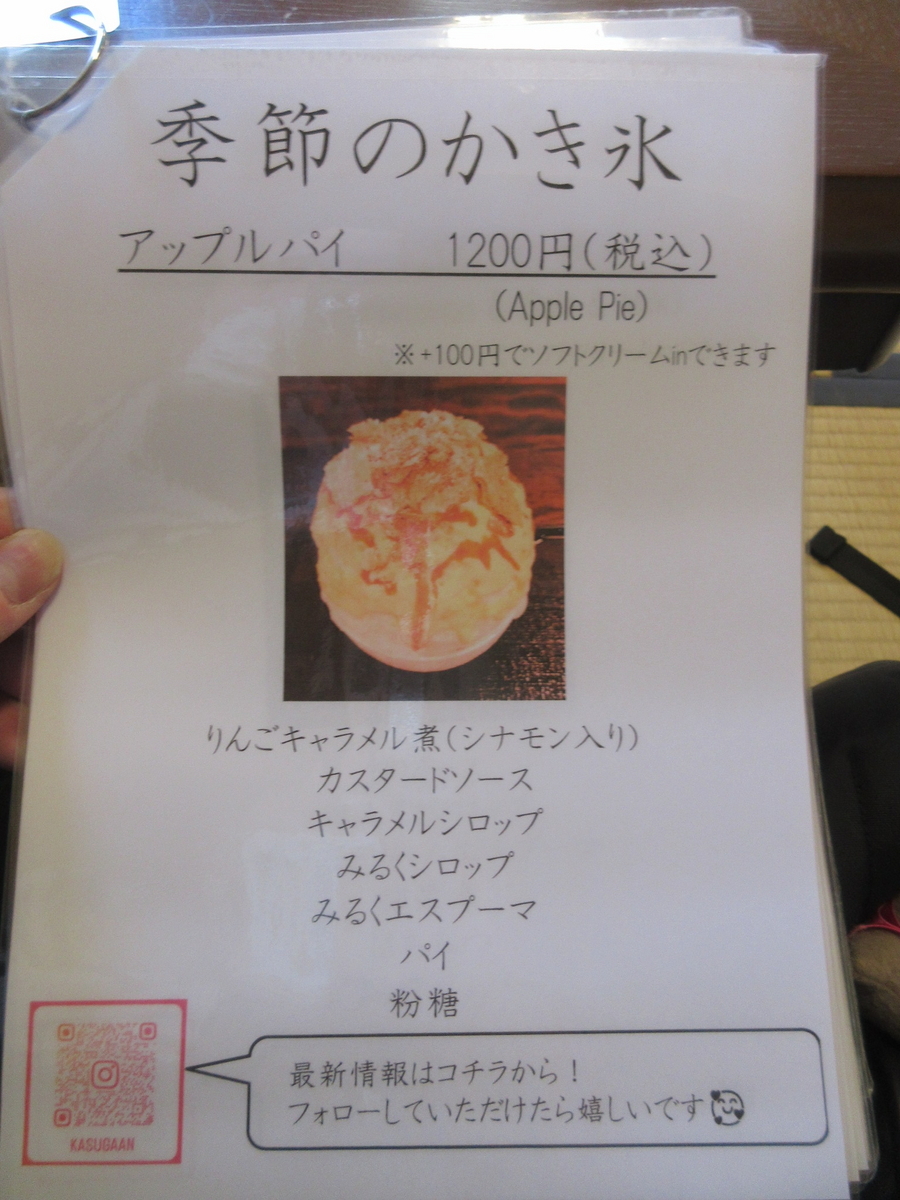 季節のかき氷
アップルパイ 1200円(税込)
(Apple Pie)
※+100円でソフトクリームinできます
りんごキャラメル煮(シナモン入り)
カスタードソース
キャラメルシロップ
みるくシロップ
みるくエスプーマ
パイ
粉糖
最新情報はコチラから!
フォローしていただけたら嬉しいです🥰
KASUGAAN